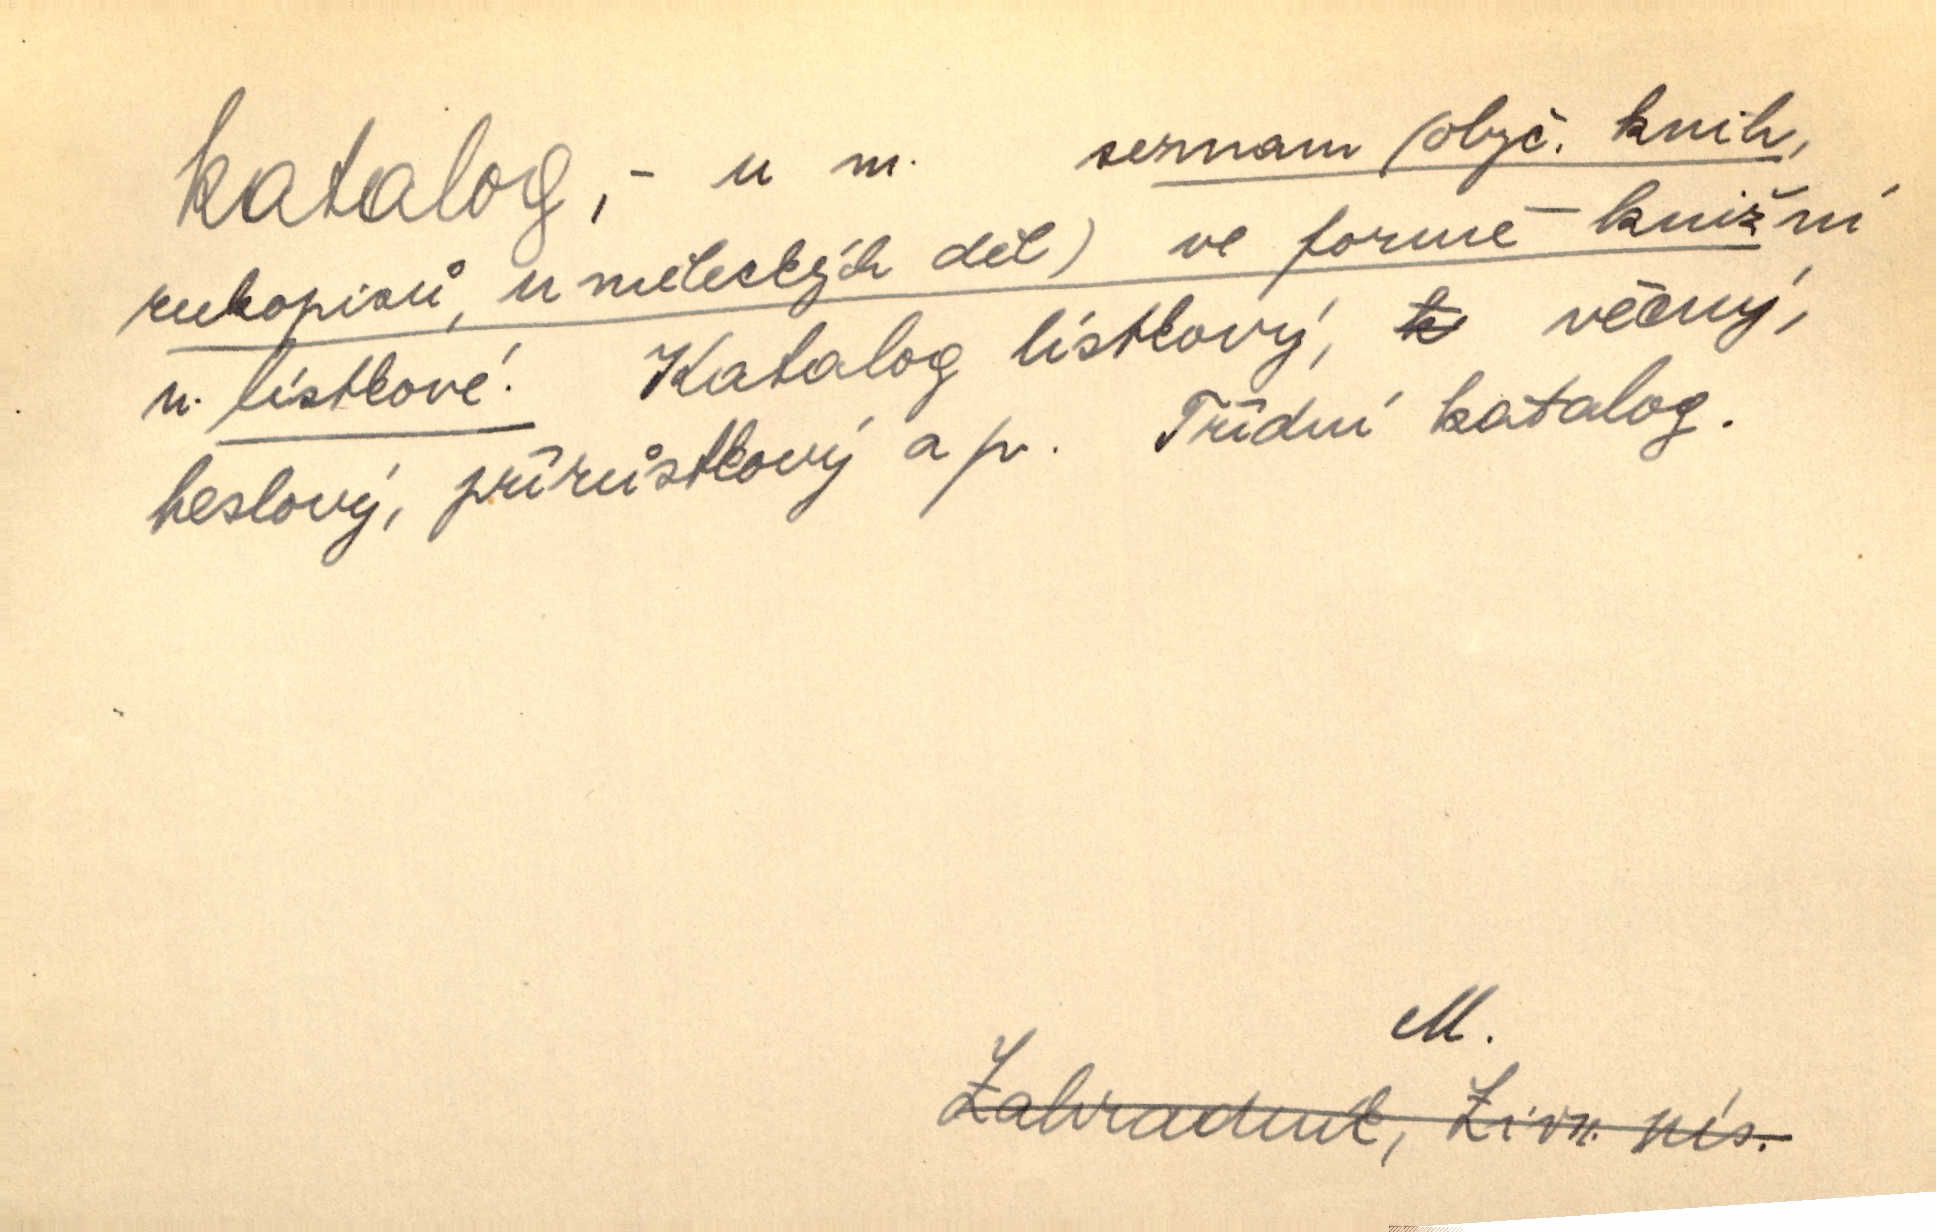 katalog, -u m. seznam (obyč. knih,
rukopisů, uměleckých děl) ve formě knižní
n. lístkové. Katalog lístkový, k věcný,
heslový, přírůstkový a p. Třídní katalog.
M.
Zahradník, Živn. pís.